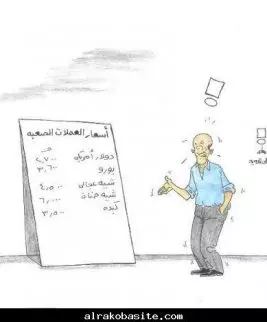 أسعار العملات الصعبه
ج
دولار أمريكي ٢,٧٠٠
يورو ٣,٦٠٠
شيه عجالي ٤,٥٠٠
شية ضأن ٦,٠٠٠
كبده ٣,٥٠٠
alrakobasite.com